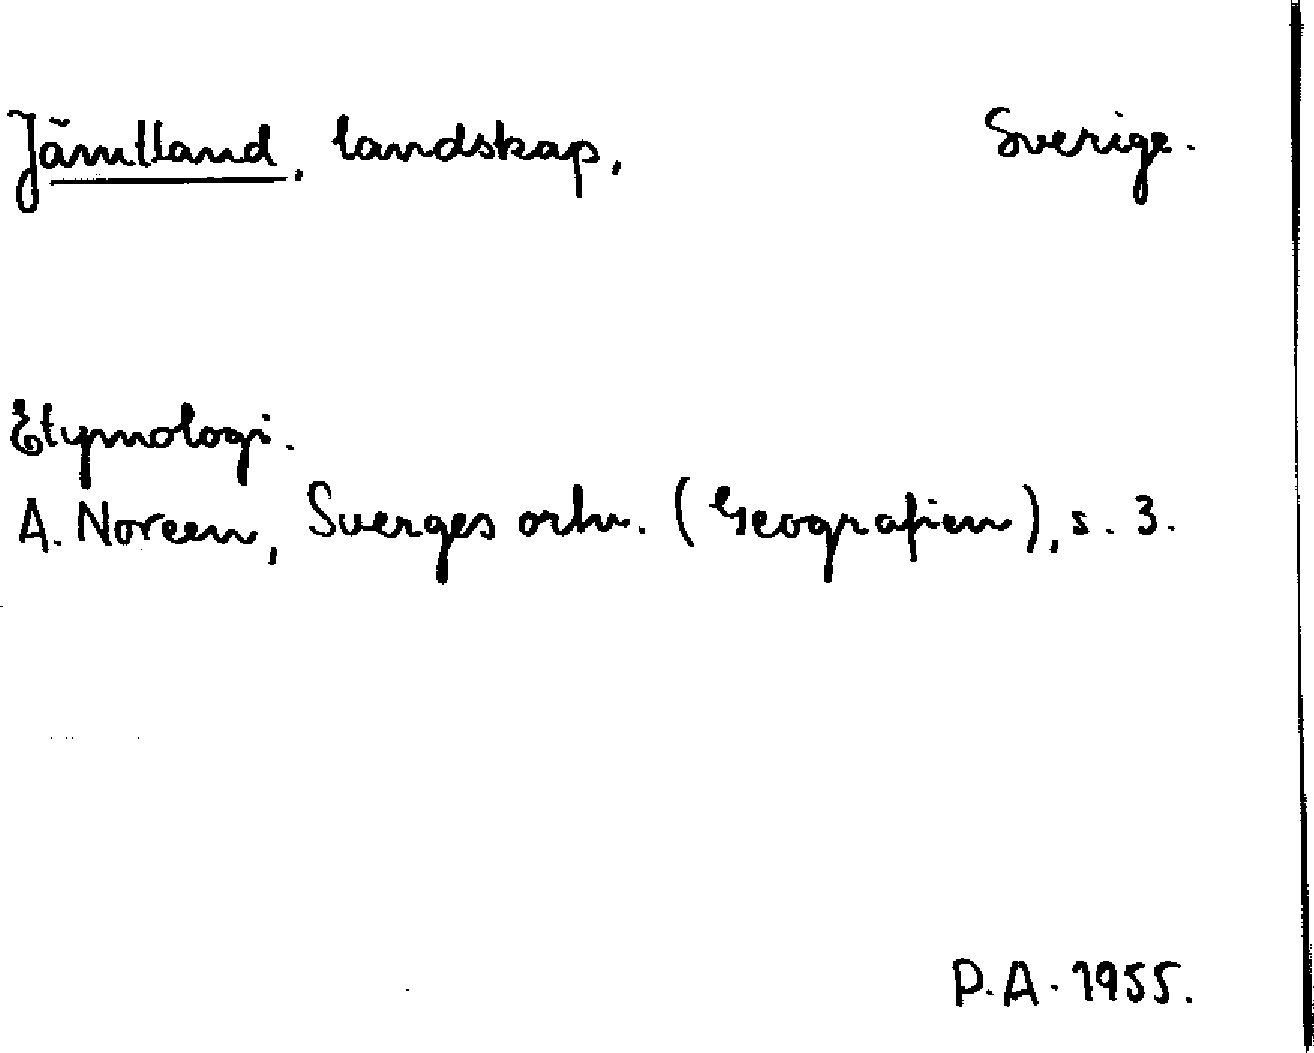 Jämtland, landskap, Sverige.
Etymologi.
A. Noreen, Sverges ortn. (Geografien), s. 3.
P.A. 1955.